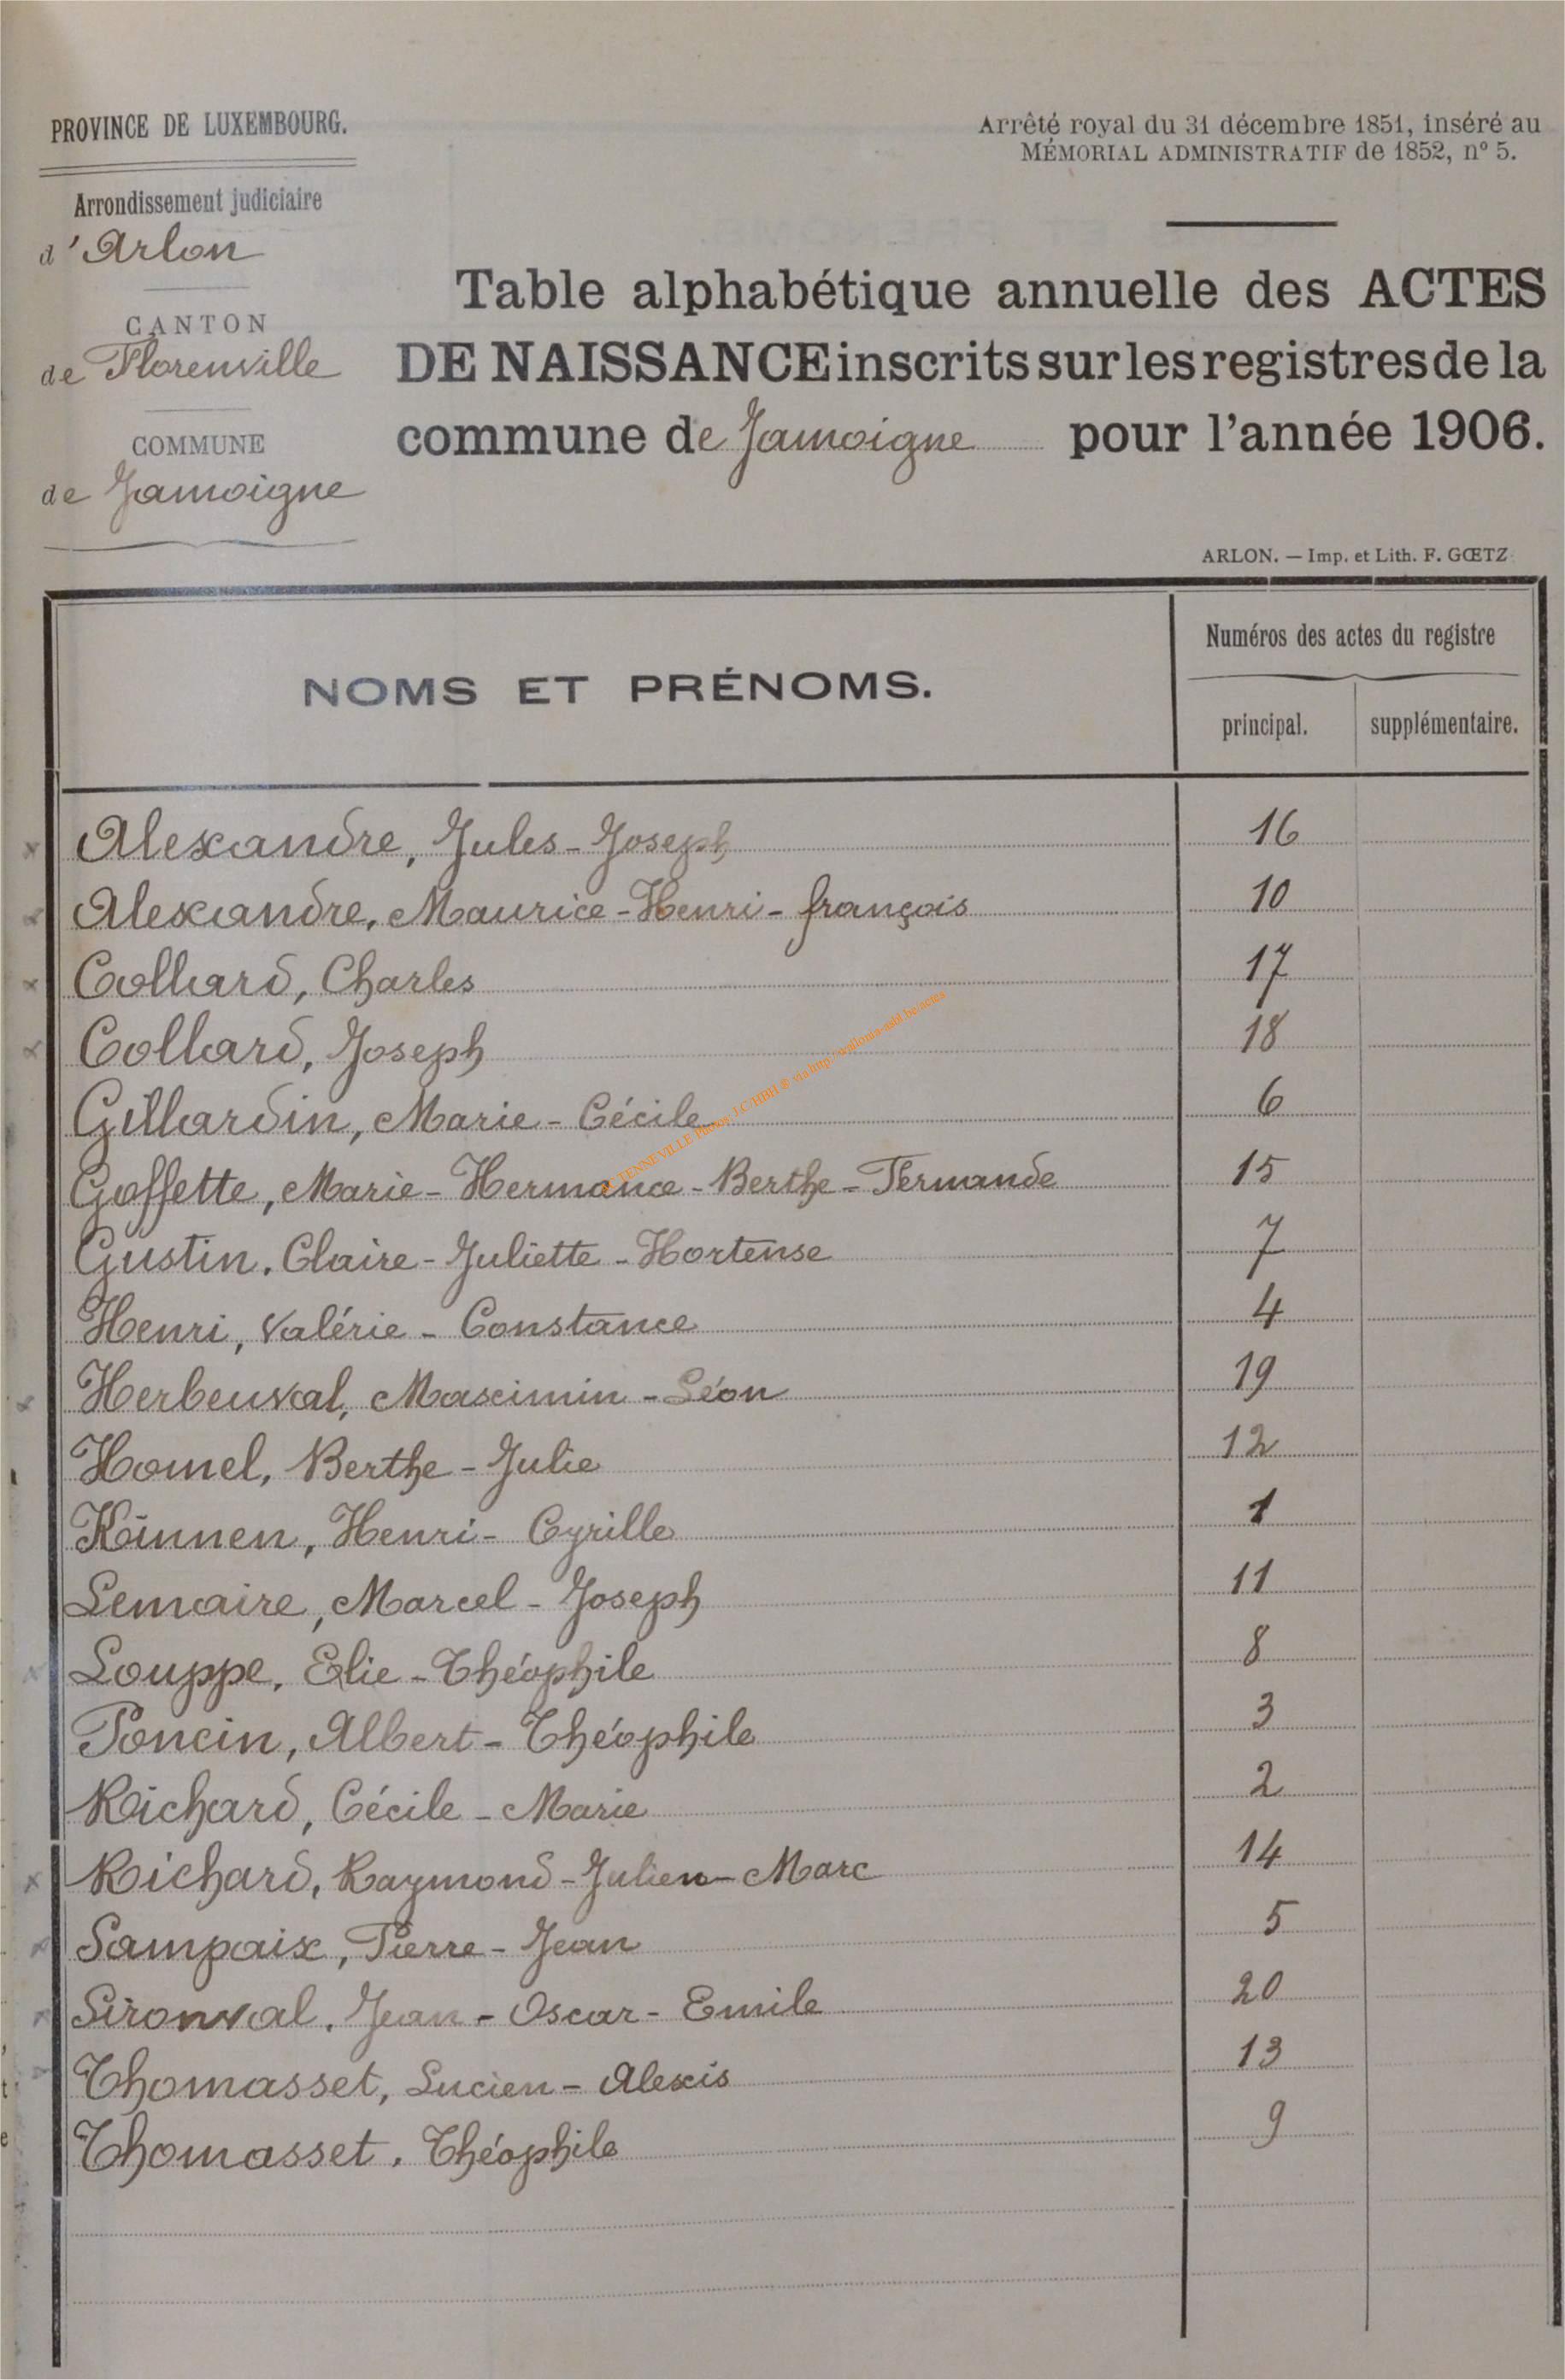 PROVINCE DE LUXEMBOURG.
Arrêté royal du 31 décembre 1851, inséré au
MÉMORIAL ADMINISTRATIF de 1852, nº 5.
Arrondissement judiciaire
d'Arlon
CANTON
de Florenville
COMMUNE
de Jamoigne
Table alphabétique annuelle des ACTES
DE NAISSANCE inscrits sur les registres de la
commune de Jamoigne pour l'année 1906.
ARLON. — Imp. et Lith. F. GŒTZ
NOMS ET PRÉNOMS.
Numéros des actes du registre
principal. supplémentaire.
Alexandre, Jules-Joseph 16
Alexandre, Maurice-Henri-françois 10
Collard, Charles 17
Collard, Joseph 18
Gillardin, Marie-Cécile 6
Goffette, Marie-Hermance-Berthe-Fernande 15
Gustin, Claire-Juliette-Hortense 7
Henri, Valérie-Constance 4
Herbeuval, Maximin-Léon 19
Hamel, Berthe-Julie 12
Künnen, Henri-Cyrille 1
Lemaire, Marcel-Joseph 11
Louppe, Elie-Théophile 8
Poncin, Albert-Théophile 3
Richard, Cécile-Marie 2
Richard, Raymond-Julien-Marc 14
Sampaix, Pierre-Jean 5
Sironval, Jean-Oscar-Emile 20
Thomasset, Lucien-Alexis 13
Thomasset, Théophile 9
TENNEVILLE Photos